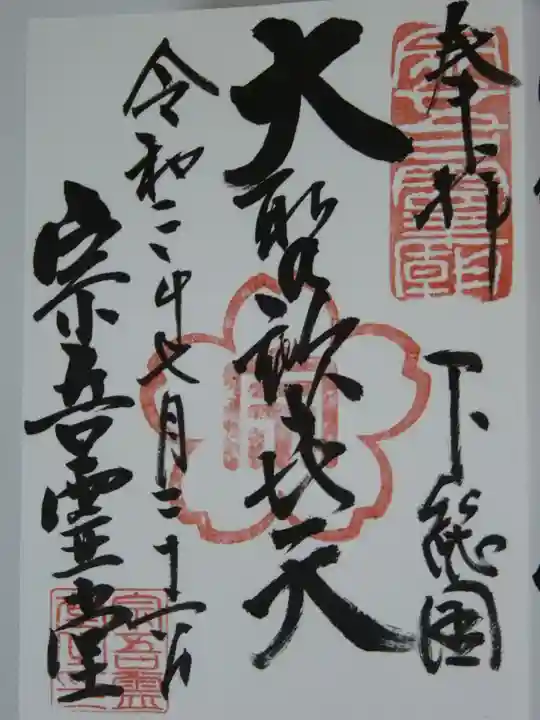 奉拝
下総国
大聖歓喜天
令和二年七月二十一日
宗吾霊堂